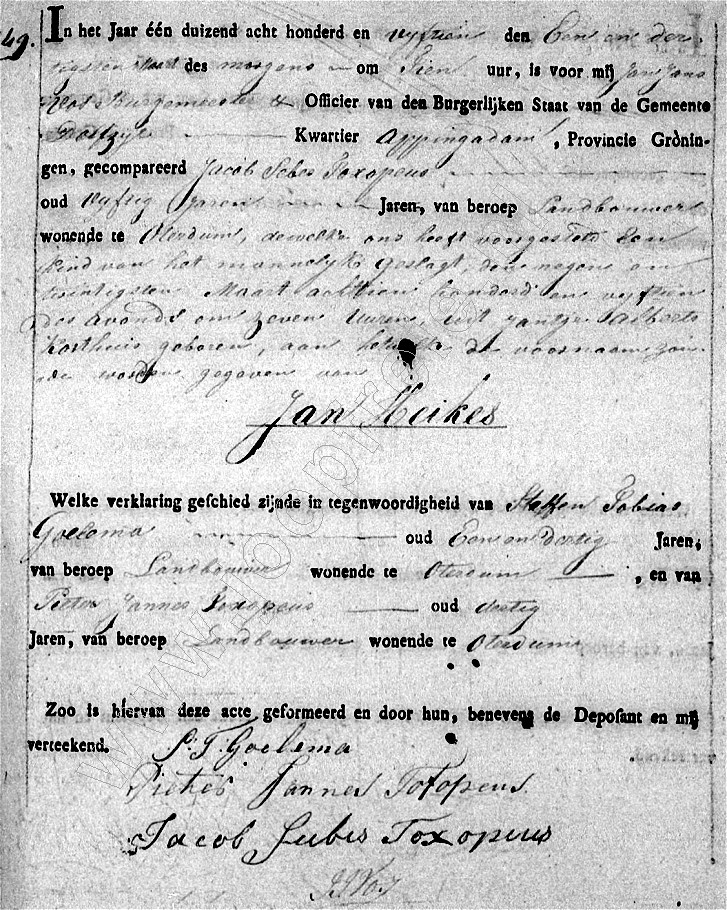 49.
In het Jaar één duizend acht honderd en vyftien den Een en der-
tigsten Maart des morgens om Tien uur, is voor mij Jan Jans
Burgemeester & Officier van den Burgerlijken Staat van de Gemeente
Delfzyl Kwartier Appingadam, Provincie Grònin-
gen, gecompareerd Jacob Sebes Toxopeus
oud vyftig Jaren Jaren, van beroep Landbouwer
wonende te Oterdum, dewelke ons heeft voorgesteld Een
kind van het mannelyk geslagt, den negen en
twintigsten Maart achttien honderd en vyftien
des avonds om zeven Uuren, uit Jantje Alberts
Korthuis geboren, aan hetwelk de voornaam zou-
de worden gegeven van
Jan Heikes
Welke verklaring geschied zijnde in tegenwoordigheid van Steffen Tobias
Goelema oud Een en dertig Jaren,
van beroep Landbouwer wonende te Oterdum, en van
Pieter Jannes Toxopeus oud dertig
Jaren, van beroep Landbouwer wonende te Oterdum
Zoo is hiervan deze acte geformeerd en door hun, benevens de Deposant en mij
verteekend. S. T. Goelema
Pieter Jannes Toxopeus
Jacob Subes Toxopeus
www.loc.ptr